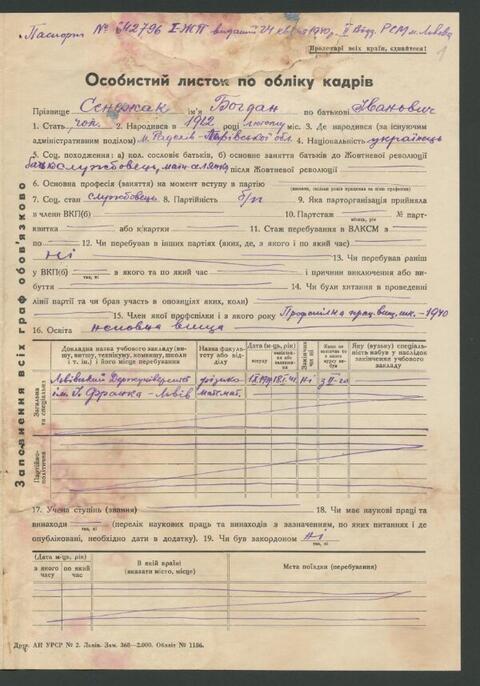 Паспорт № 642796 І-ЖП виданий 24 1940 р. ІІ Відд. РСМ м. Львова
Пролетарі всіх країн, єднайтеся!
1
Особистий листок по обліку кадрів
Прізвище Сенежак ім'я Богдан по батькові Іванович
1. Стать чол. 2. Народився в 1922 році лютому міс. 3. Де народився (за існуючим
адміністративним поділом) м. Радехів Львівської обл. 4. Національність українець
5. Соц. походження: а) кол. сословіє батьків, б) основне заняття батьків до Жовтневої революції
службовець, мати селянка після Жовтневої революції
6. Основна професія (заняття) на момент вступу в партію
7. Соц. стан службовець 8. Партійність б/п 9. Яка парторганізація прийняла
в члени ВКП(б) 10. Партстаж № парт-
місяць, рік
квитка або к/картки 11. Стаж перебування в ВЛКСМ з
по 12. Чи перебував в інших партіях (яких, де, з якого і по який час)
ні 13. Чи перебував раніш
у ВКП(б) в якого та по який час і причини виключення або ви-
так, ні
буття 14. Чи були хитання в проведенні
лінії партії та чи брав участь в опозиціях яких, коли)
15. Член якої профспілки і з якого року Профспілка прац. вищ. шк. - 1940
16. Освіта неповна вища
Заповнення всіх граф обов'язково
Докладна назва учбового закладу (ви-
шу, втишу, технікуму, комвишу, школи
і т. ін.) і його місце перебування
Назва факуль-
тету або від-
ділу
Дата (м-ця, рік)
вступу
Закінчив
чи ні
Яку (вузьку) спеціаль-
ність набув у наслідок
закінчення учбового
закладу
Загальна
та спеціальна
Львівський Держуніверситет фізико-
ім. Ів. Франка - Львів математ.
ні
Партійно-
політична
17. Учена ступінь (звання) 18. Чи має наукові праці та
винаходи (перелік наукових праць та винаходів з зазначенням, по яких питаннях і де
так, ні
опубліковані, необхідно дати в додатку). 19. Чи був закордоном ні
так, ні
(Дата м-ця, рік)
з якого
часу
по який
час
В якій країні
(вказати місто, місце)
Мета поїздки (перебування)
Друк. АН УРСР № 2. Львів. Зам. 360—2.000. Обліт № 1186.